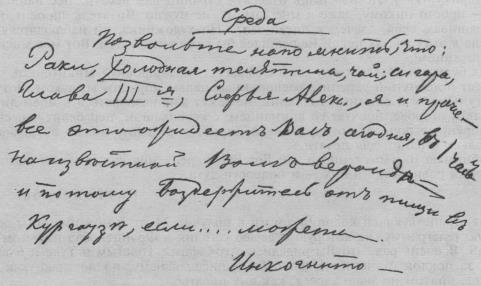 Среда
Позвольте напомнить, что:
Раки, холодная телятина, чай, сигара,
Глава III я, Софья Алек., я и прочее
все это ожидает Васъ, сегодня, в 1 часъ
на известной Вамъ веранде
и потому воздержитесь отъ пищи въ
Кургаузе, если.... можете.
Инкогнито —